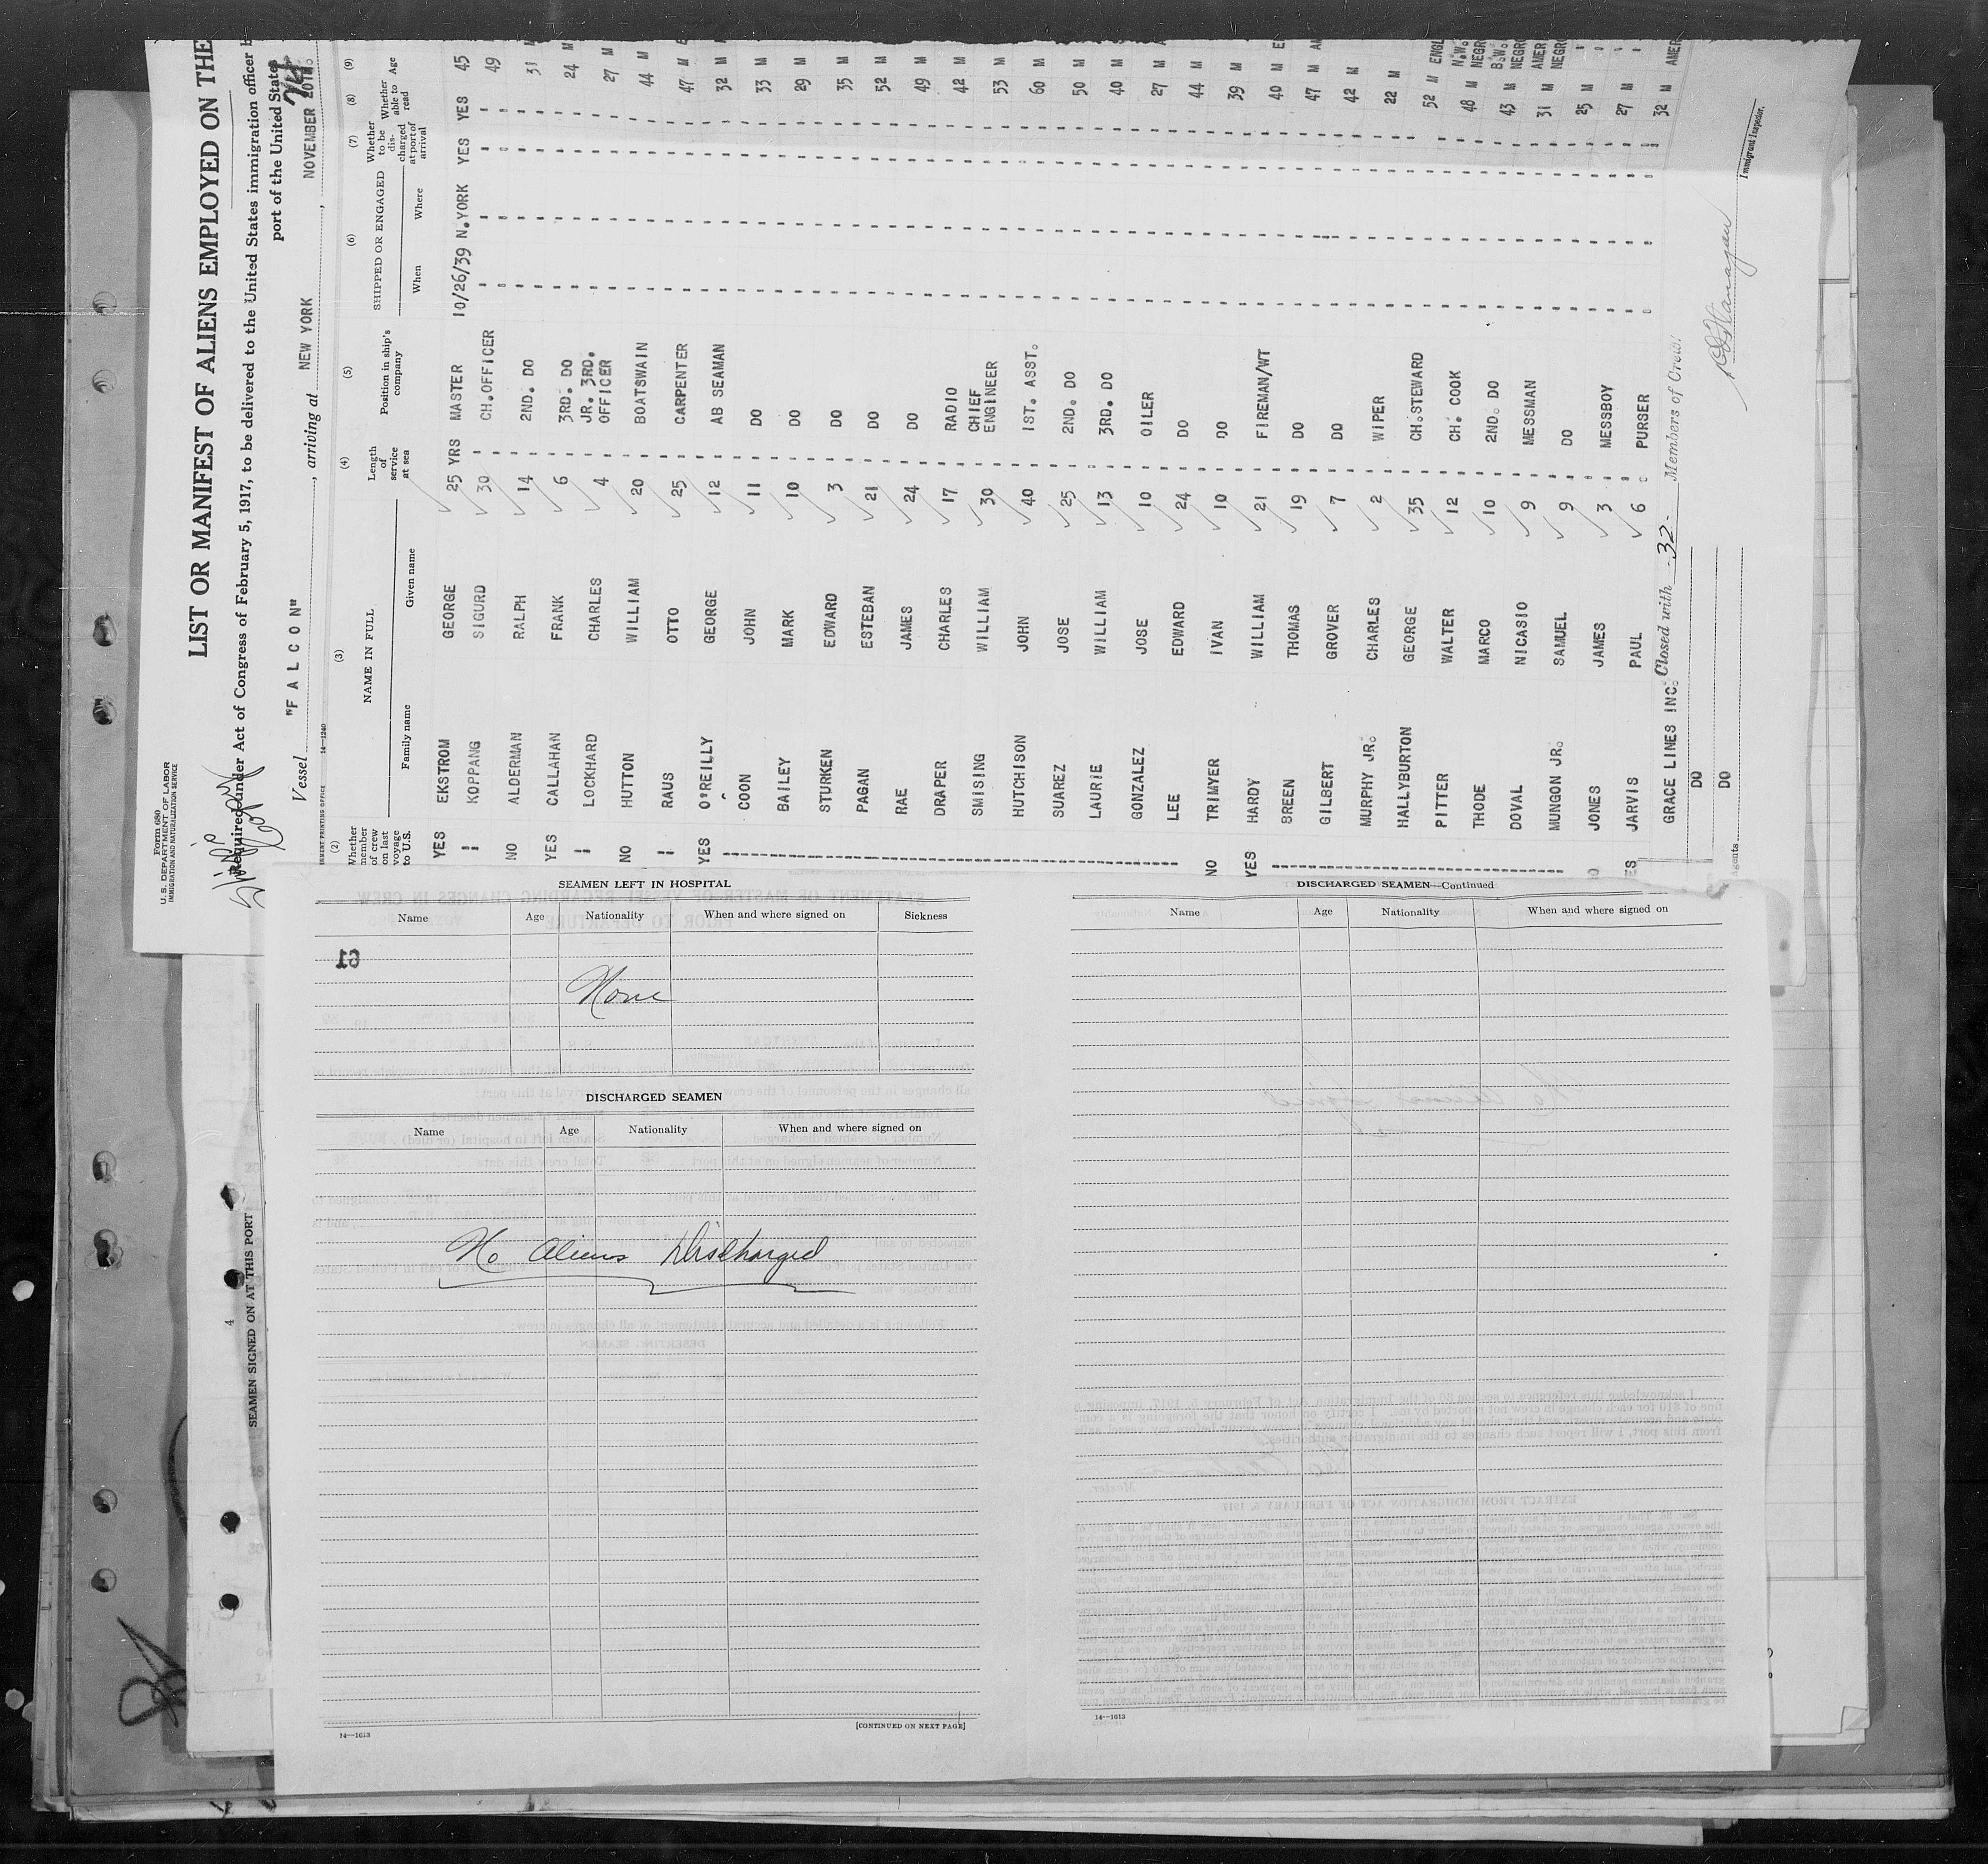 Form 680
U. S. DEPARTMENT OF LABOR
IMMIGRATION AND NATURALIZATION SERVICE
Ship's Copy
LIST OR MANIFEST OF ALIENS EMPLOYED ON THE
Required under Act of Congress of February 5, 1917, to be delivered to the United States immigration officer
port of the United States
Vessel "FALCON", arriving at NEW YORK, NOVEMBER
14—1240
(2) (3) (4) (5) (6) (7) (8) (9)
Whether member of crew on last voyage to U.S. NAME IN FULL Family name Given name Length of service at sea Position in ship's company SHIPPED OR ENGAGED When Where Whether to be discharged at port of arrival Whether able to read Age
YES EKSTROM GEORGE 25 YRS MASTER 10/26/39 N.YORK YES YES 45
" KOPPANG SIGURD 30 " CH.OFFICER " " " " 49
NO ALDERMAN RALPH 14 " 2ND. DO " " " " 31
YES CALLAHAN FRANK 6 " 3RD. DO " " " " 24 M
" LOCKHARD CHARLES 4 " JR. 3RD. OFFICER " " " " 27 M
NO HUTTON WILLIAM 20 " BOATSWAIN " " " " 44 M
" RAUS OTTO 25 " CARPENTER " " " " 47 M
YES O'REILLY GEORGE 12 " AB SEAMAN " " " " 32 M
" COON JOHN 11 " DO " " " " 33 M
" BAILEY MARK 10 " DO " " " " 29 M
" STURKEN EDWARD 3 " DO " " " " 35 M
" PAGAN ESTEBAN 21 " DO " " " " 52 M
" RAE JAMES 24 " DO " " " " 49 M
" DRAPER CHARLES 17 " RADIO " " " " 42 M
" SMISING WILLIAM 30 " CHIEF ENGINEER " " " " 53 M
" HUTCHISON JOHN 40 " 1ST. ASST. " " " " 60 M
" SUAREZ JOSE 25 " 2ND. DO " " " " 50 M
" LAURIE WILLIAM 13 " 3RD. DO " " " " 40 M
" GONZALEZ JOSE 10 " OILER " " " " 27 M
" LEE EDWARD 24 " DO " " " " 44 M
NO TRIMYER IVAN 10 " DO " " " " 39 M
YES HARDY WILLIAM 21 " FIREMAN/WT " " " " 40 M
" BREEN THOMAS 19 " DO " " " " 47 M
" GILBERT GROVER 7 " DO " " " " 42 M
" MURPHY JR. CHARLES 2 " WIPER " " " " 22 M
" HALLYBURTON GEORGE 35 " CH.STEWARD " " " " 52 M ENGL
" PITTER WALTER 12 " CH. COOK " " " " 48 M N.W. NEGR
" THODE MARCO 10 " 2ND. DO " " " " 43 M B.W. NEGRO
" DOVAL NICASIO 9 " MESSMAN " " " " 31 M AMER
" MUNGON JR. SAMUEL 9 " DO " " " " 25 M NEGRO
JONES JAMES 3 " MESSBOY " " " " 27 M
JARVIS PAUL 6 " PURSER " " " " 32 M AMER
GRACE LINES INC. Closed with -32- Members of Crew.
DO
DO
Immigrant Inspector.
SEAMEN LEFT IN HOSPITAL
Name Age Nationality When and where signed on Sickness
61
None
DISCHARGED SEAMEN
Name Age Nationality When and where signed on
No Aliens Discharged
[CONTINUED ON NEXT PAGE]
14—1613
DISCHARGED SEAMEN—Continued
Name Age Nationality When and where signed on
14—1613
SEAMEN SIGNED ON AT THIS PORT
4